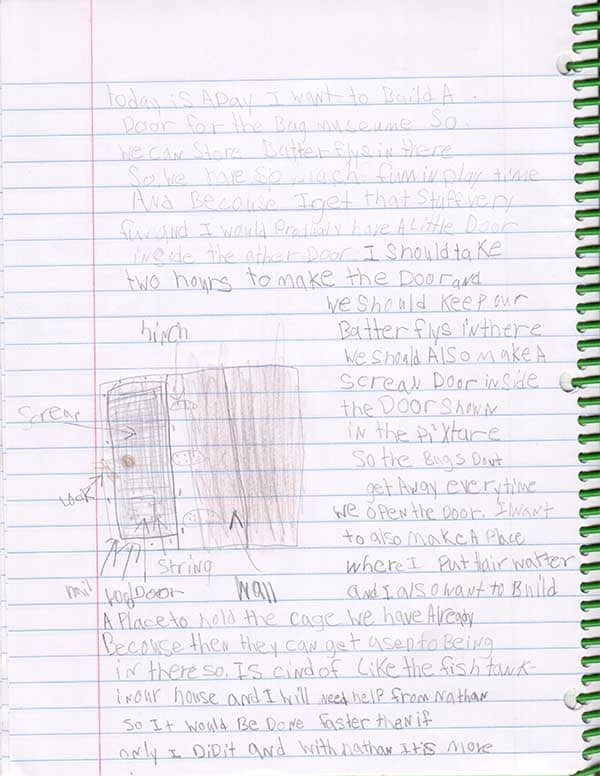 today is A Day I want to Baild A
Door for the Bug museume So
we can Store Batterflys in there
So. we have So much fun in play time
And Because I get that Stuff very
fun and I would Probuals have A Little Door
inside the other Door I Should take
two hours to make the Door and
we Should keep our
Batterflys in there
we should Also make A
Screan Door inside
the Door Shown
in the pixture
So the Bugs Dont
get Away everytime
we open the Door. I want
to also make A Place
where I Put Hair watter
and I also want to Build
A Place to hold the cage we have Already
Because then they can get used to Being
in there so. IS cind of Like the fish tank
in our house and I will need help from Nathan
So It would Be Done faster then if
only I DiD it and with nathan It's more
hinch
Screan
Lock
String
nail
Door
Wall